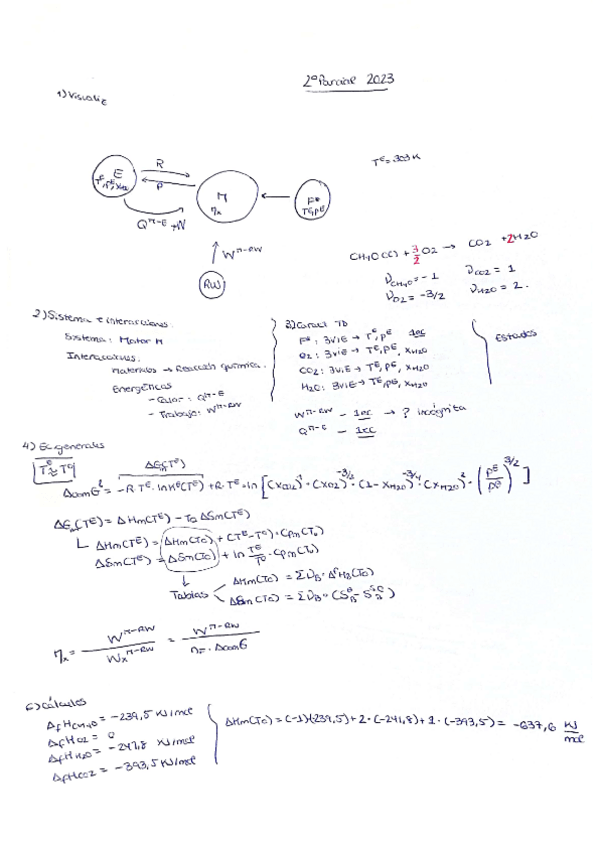 2º Parcial 2023
1) Visualiz
E
T^E, P^E, X_H2O
R
P
M
η_x
F*
T^E, P^E
T^E = 303 K
Q^M-E
W^M-RW
RW
CH₄O(l) + 3/2 O2 → CO2 + 2H2O
ν_CH4O = -1 ν_CO2 = 1
ν_O2 = -3/2 ν_H2O = 2.
2) Sistema e interacciones.
Sistema: Motor M
Interacciones:
Materiales → Reacción química.
Energéticas
- Calor: Q^M-E
- Trabajo: W^M-RW
3) Caract TD
F*: 3VIE → T^E, P^E 1ec
O2: 3VIE → T^E, P^E, X_H2O
CO2: 3VIE → T^E, P^E, X_H2O
H2O: 3VIE → T^E, P^E, X_H2O
Estados
W^M-RW - 1ec → ? incógnita
Q^M-E - 1ec
4) Ec generales
ΔG(T^E)
ΔcomG = -R·T^E·lnK^θ(T^E) + R·T^E·ln[(X_CO2)^1·(X_O2)^-3/2·(1-X_H2O)^-3/4·(X_H2O)^2·(P^E/P^θ)^3/2]
ΔG(T^E) = ΔHm(T^E) - T₀ ΔSm(T^E)
ΔHm(T^E) = ΔHm(T₀) + (T^E-T⁰)·Cpm(T₀)
ΔSm(T^E) = ΔSm(T₀) + ln T^E/T⁰·Cpm(T₀)
Tablas
ΔHm(T₀) = Σν_B·Δ_fH_B(T₀)
η_x = W^M-RW / W_x^M-RW = W^M-RW / n_F·ΔcomG
6) Cálculos
Δ_fH_CH4O = -239,5 KJ/mol
Δ_fH_O2 = 0
Δ_fH_H2O = -241,8 KJ/mol
Δ_fH_CO2 = -393,5 KJ/mol
ΔHm(T₀) = (-1)(-239,5) + 2·(-241,8) + 1·(-393,5) = -637,6 KJ/mol